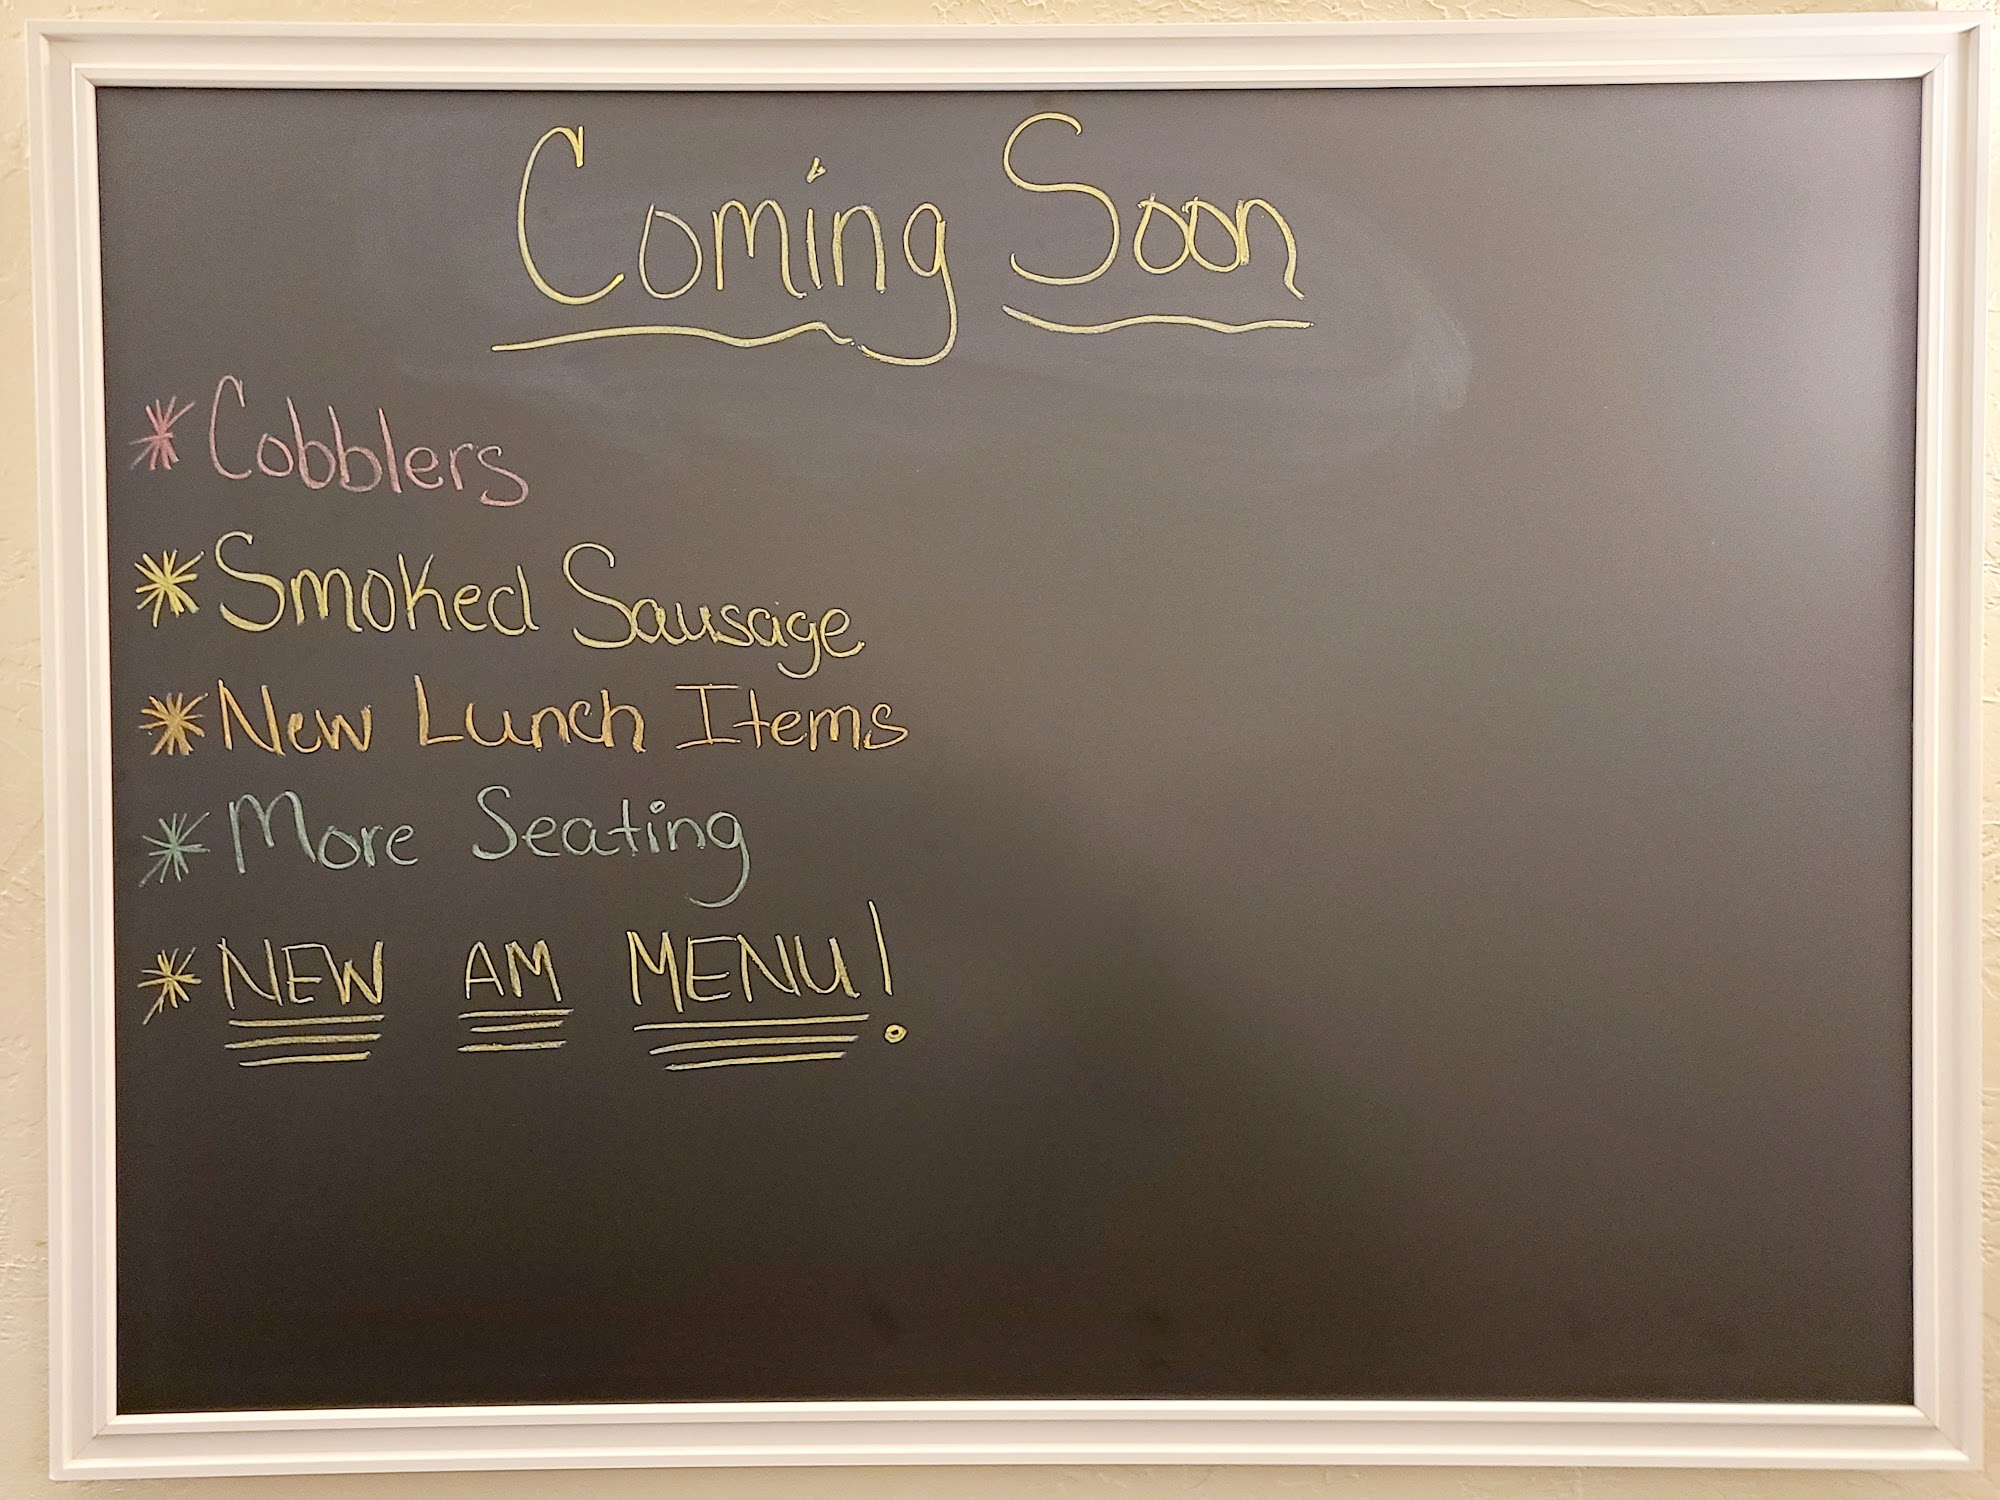 Coming Soon
* Cobblers
* Smoked Sausage
* New Lunch Items
* More Seating
* NEW AM MENU!